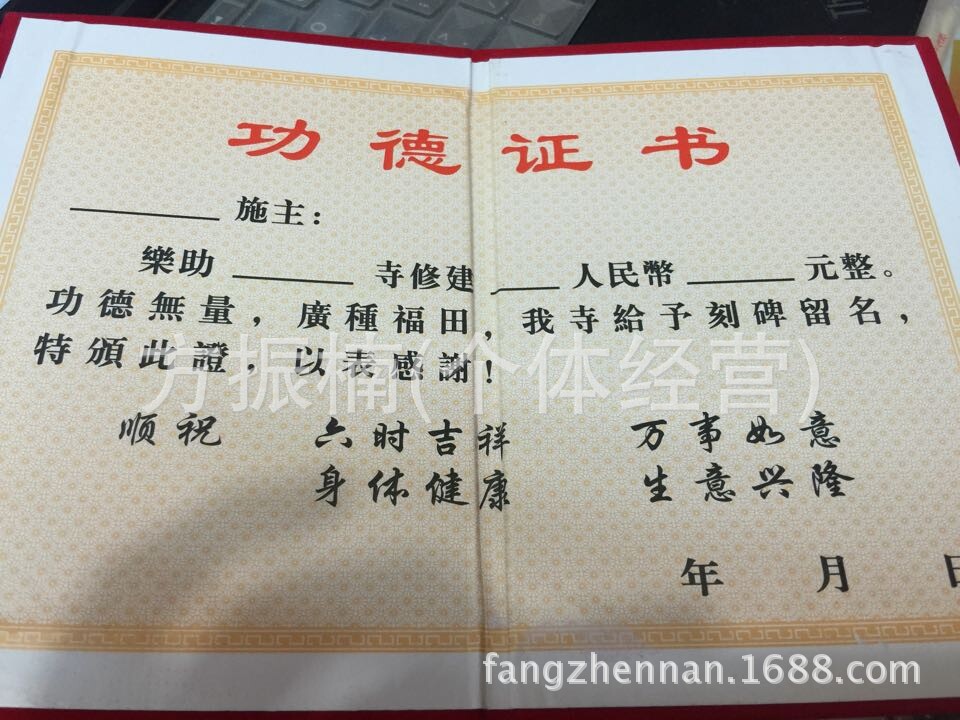 功德证书
______ 施主：
樂助 ______ 寺修建 ______ 人民幣 ______ 元整。
功德無量，廣種福田，我寺給予刻碑留名，
特頒此證，以表感謝！
方振楠(个体经营)
顺祝 六时吉祥 万事如意
身体健康 生意兴隆
年 月 日
fangzhennan.1688.com